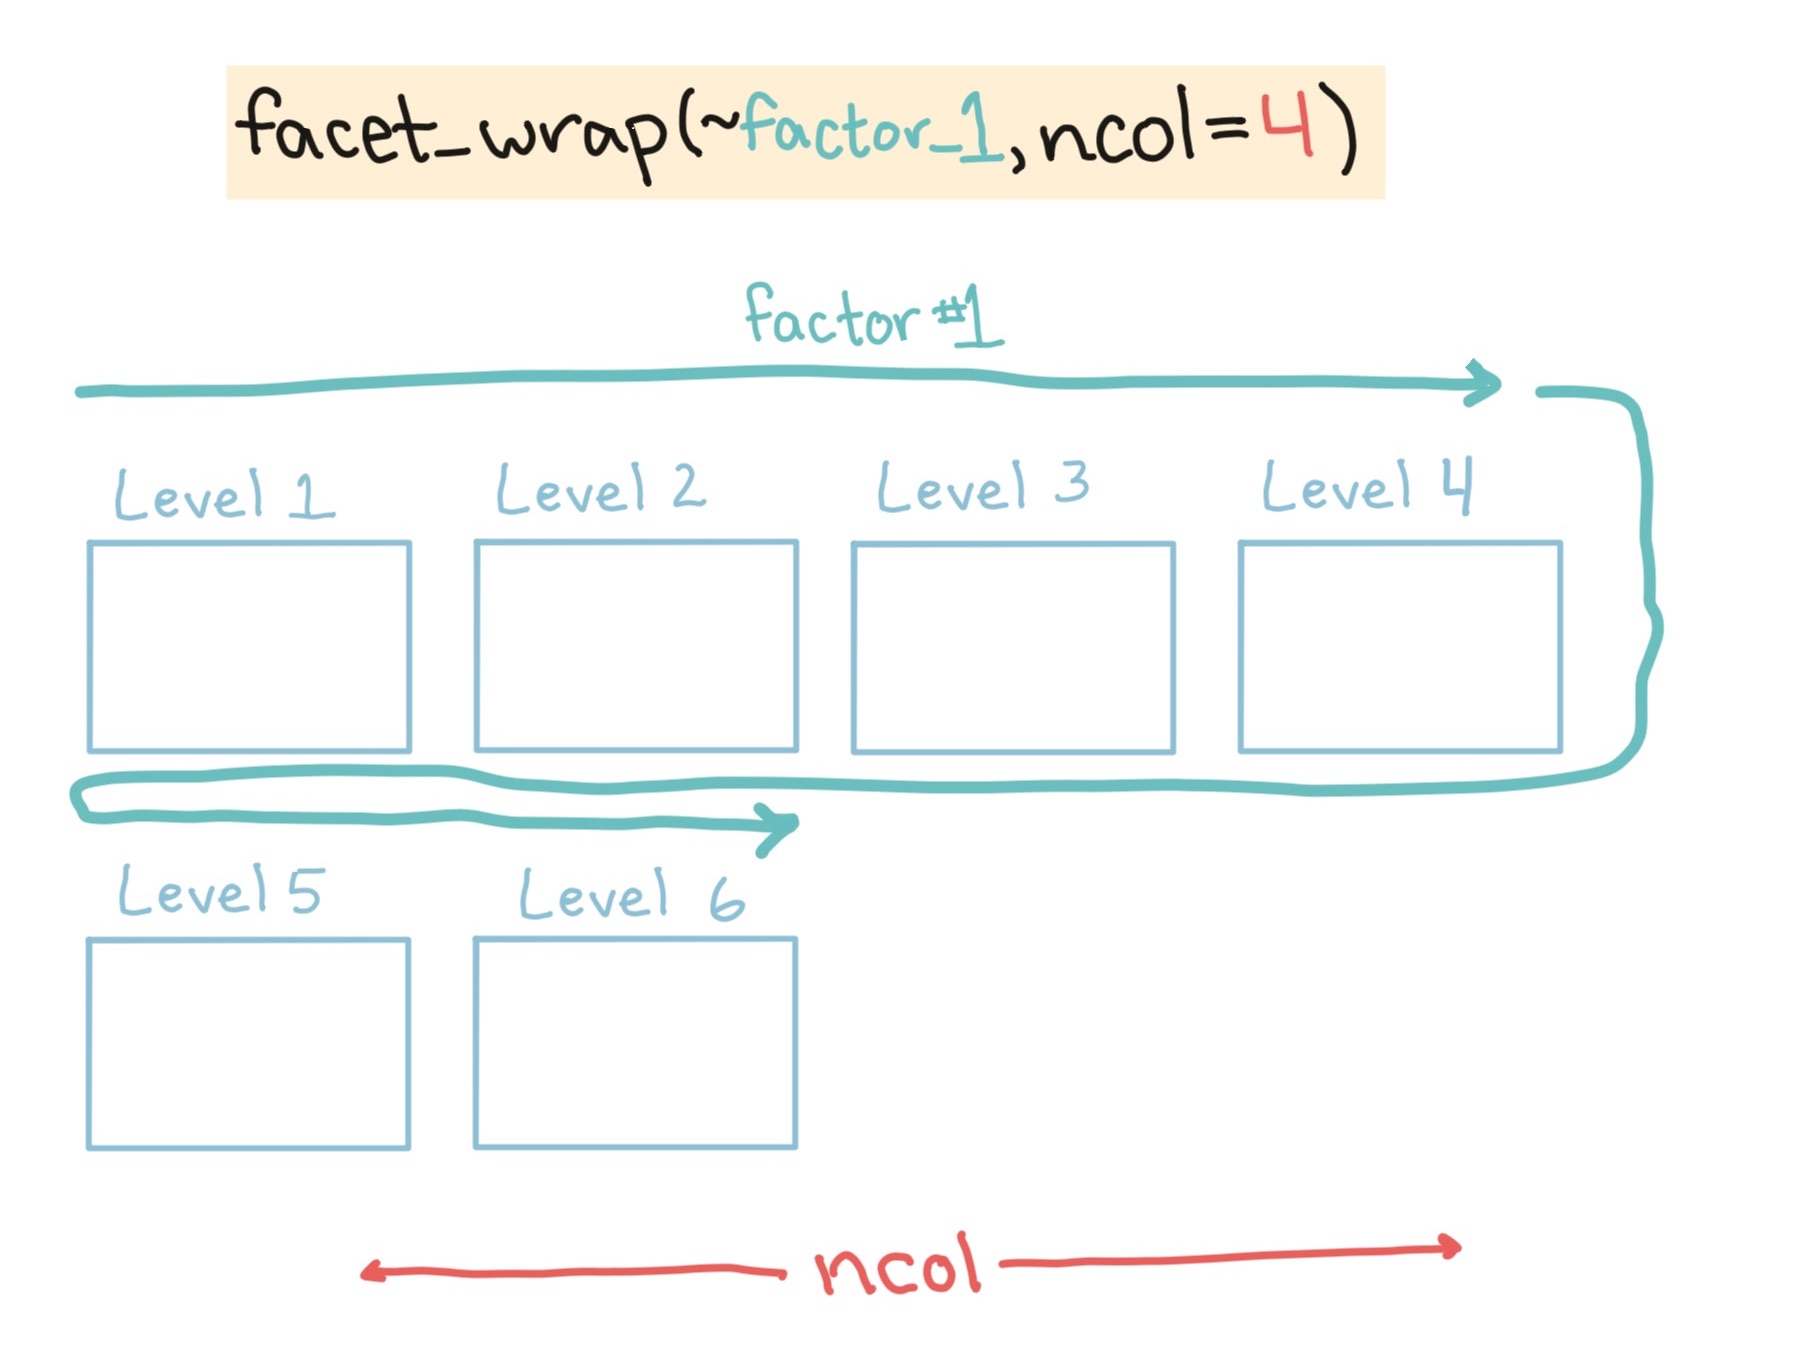 facet_wrap(~factor_1,ncol=4)
factor #1
Level 1 Level 2 Level 3 Level 4
Level 5 Level 6
ncol